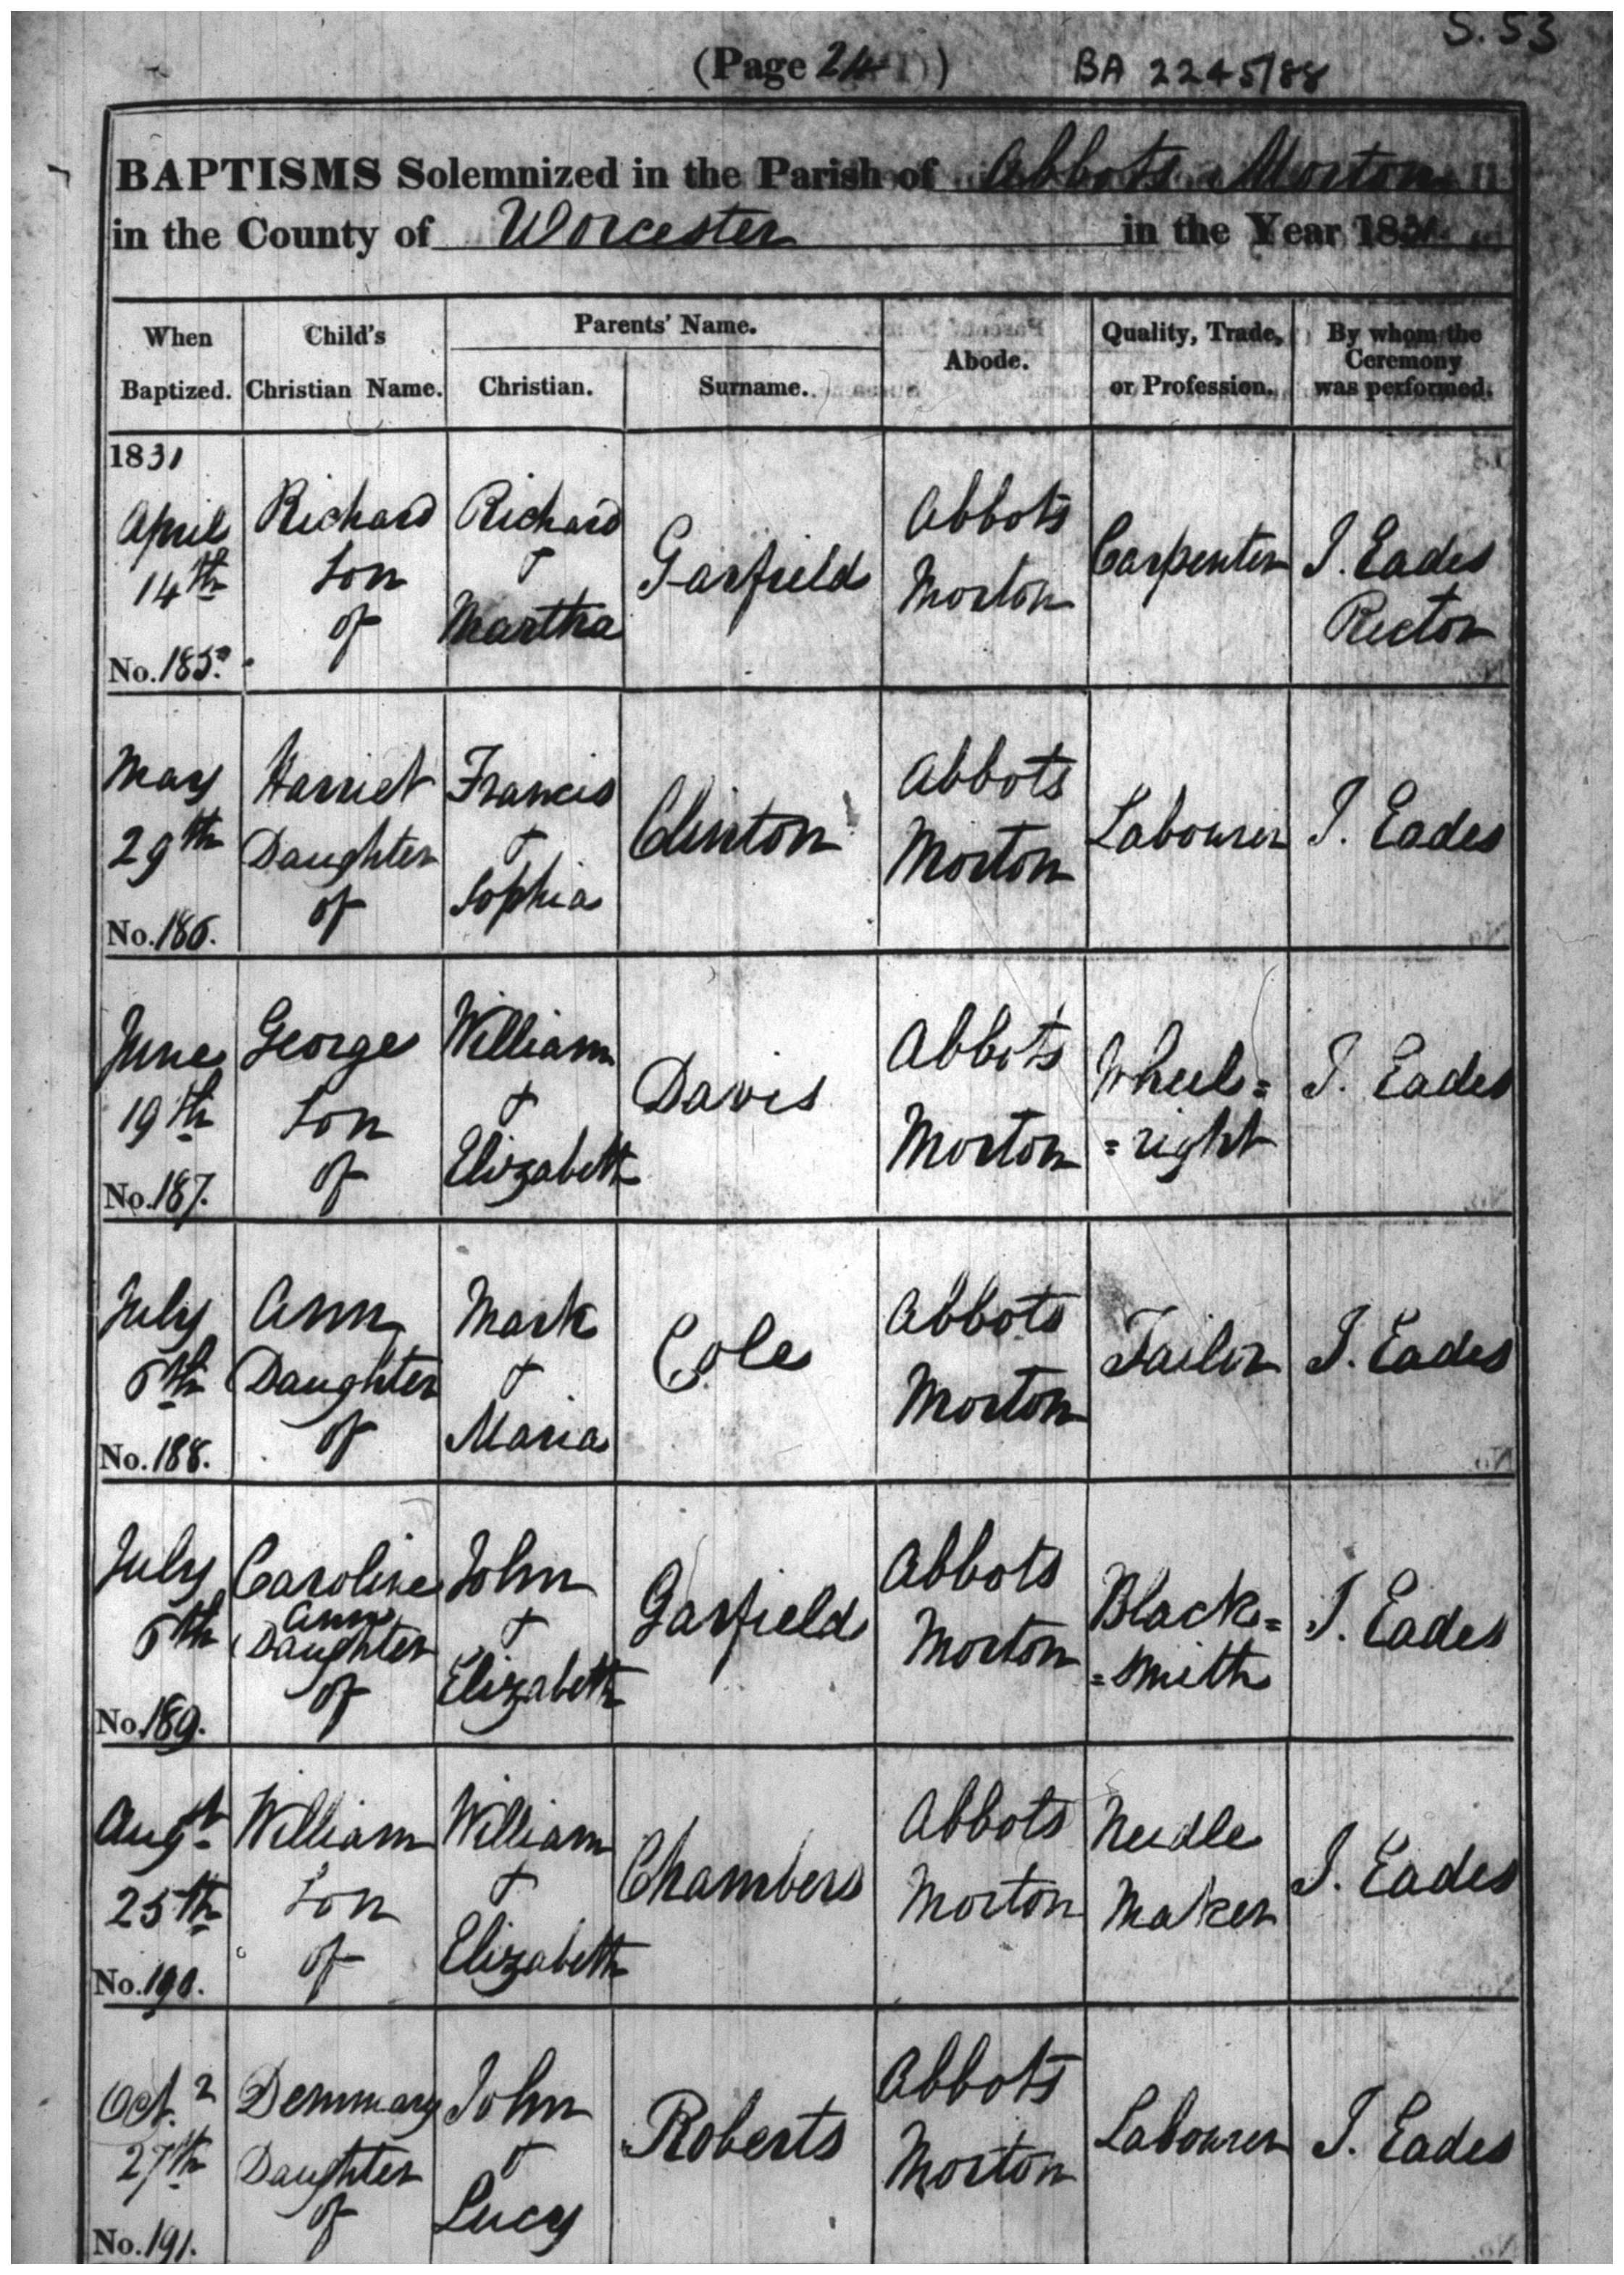 S. 53
(Page 24)
BA 2245/88
BAPTISMS Solemnized in the Parish of Abbots Morton
in the County of Worcester in the Year 1831
When Baptized.
Child's Christian Name.
Parents' Name.
Christian.
Surname.
Abode.
Quality, Trade, or Profession.
By whom the Ceremony was performed.
1831
April 14th
No. 185.
Richard Son of
Richard + Martha
Garfield
Abbots Morton
Carpenter
J. Eades Rector
May 29th
No. 186.
Harriet Daughter of
Francis + Sophia
Clinton
Abbots Morton
Labourer
J. Eades
June 19th
No. 187.
George Son of
William + Elizabeth
Davis
Abbots Morton
Wheel= =right
J. Eades
July 6th
No. 188.
Ann Daughter of
Mark + Maria
Cole
Abbots Morton
Tailor
J. Eades
July 6th
No. 189.
Caroline Ann Daughter of
John + Elizabeth
Garfield
Abbots Morton
Black= =smith
J. Eades
Augst 25th
No. 190.
William Son of
William + Elizabeth
Chambers
Abbots Morton
Needle Maker
J. Eades
Oct. 27th
No. 191.
Demmary Daughter of
John + Lucy
Roberts
Abbots Morton
Labourer
J. Eades